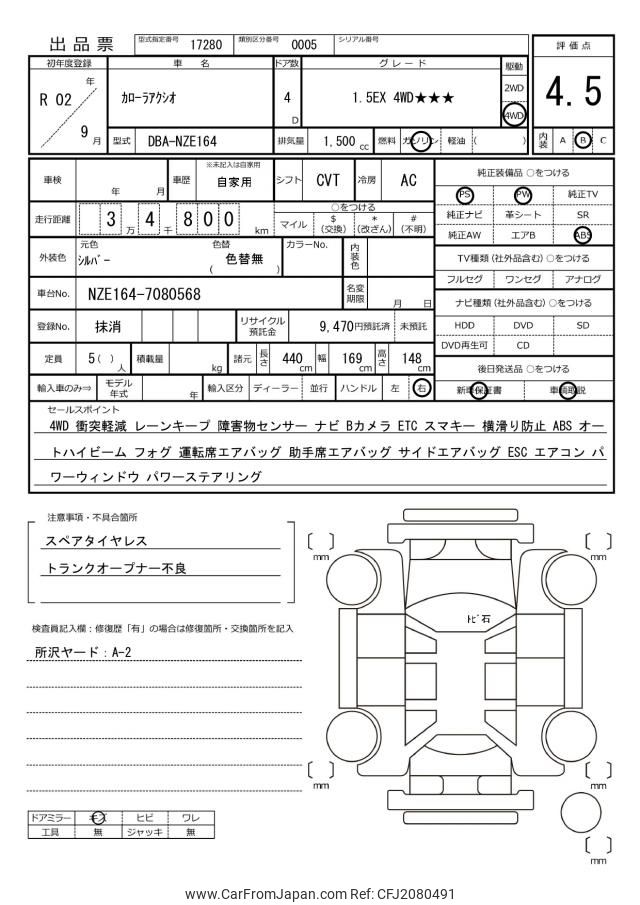 出品票
型式指定番号 17280 類別区分番号 0005 シリアル番号
評価点
4.5
内装 A B C
初年度登録 車名 ドア数 グレード 駆動
R 02 年 9 月
カローラアクシオ
4 D
1.5EX 4WD★★★
2WD
4WD
型式 DBA-NZE164 排気量 1,500 cc 燃料 ガソリン 軽油 ( )
車検 年 月 車歴 ※未記入は自家用 自家用 シフト CVT 冷房 AC
走行距離 3 4 800 万 千 km
○をつける
マイル $ (交換) * (改ざん) # (不明)
外装色 元色 シルバー 色替 ( 色替無 ) カラーNo. 内装色
車台No. NZE164-7080568 名変期限 月 日
登録No. 抹消 リサイクル預託金 9,470円預託済 未預託
定員 5( ) 人 積載量 kg 諸元 長さ 440 cm 幅 169 cm 高さ 148 cm
輸入車のみ⇒ モデル年式 年 輸入区分 ディーラー 並行 ハンドル 左 右
純正装備品 ○をつける
PS PW 純正TV
純正ナビ 革シート SR
純正AW エアB ABS
TV種類 (社外品含む) ○をつける
フルセグ ワンセグ アナログ
ナビ種類 (社外品含む) ○をつける
HDD DVD SD
DVD再生可 CD
後日発送品 ○をつける
新車保証書 車輌取説
セールスポイント
4WD 衝突軽減 レーンキープ 障害物センサー ナビ Bカメラ ETC スマキー 横滑り防止 ABS オー
トハイビーム フォグ 運転席エアバッグ 助手席エアバッグ サイドエアバッグ ESC エアコン パ
ワーウィンドウ パワーステアリング
注意事項・不具合箇所
スペアタイヤレス
トランクオープナー不良
検査員記入欄：修復歴「有」の場合は修復箇所・交換箇所を記入
所沢ヤード：A-2
mm
mm
トビ石
mm
mm
mm
ドアミラー キズ ヒビ ワレ
工具 無 ジャッキ 無
www.CarFromJapan.com Ref: CFJ2080491